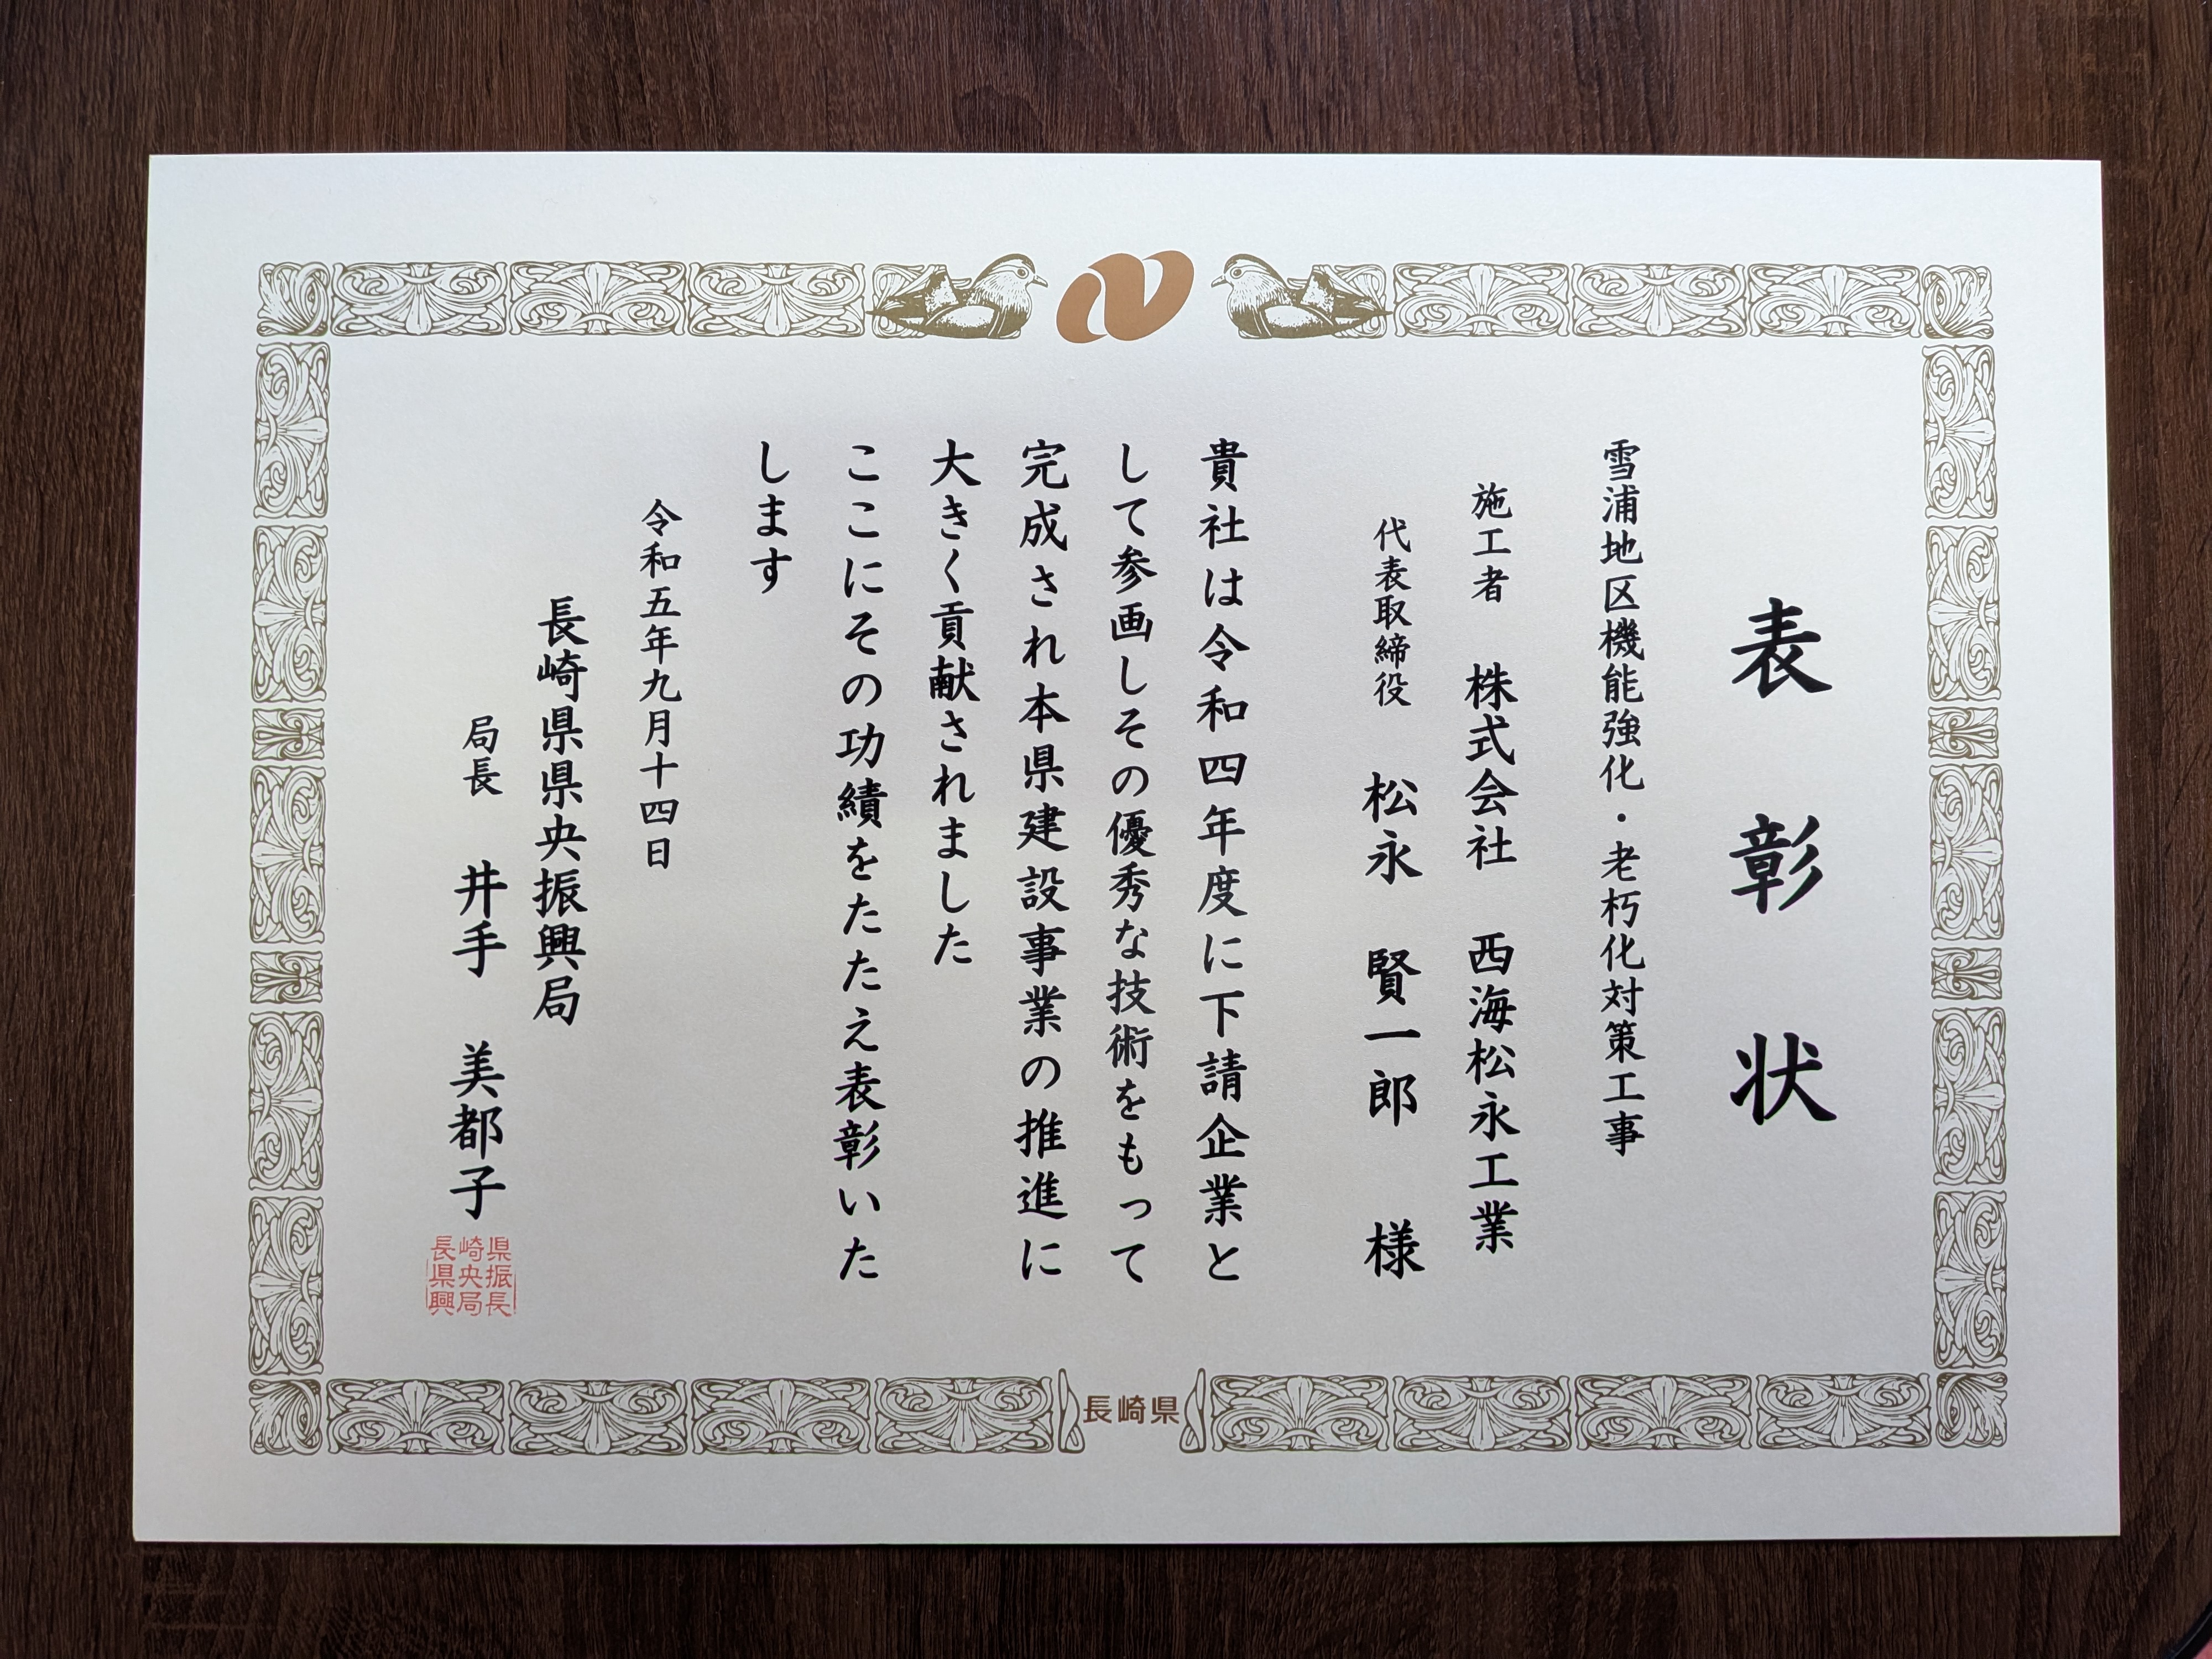 表彰状
雪浦地区機能強化・老朽化対策工事
施工者 株式会社 西海松永工業
代表取締役 松永 賢一郎 様
貴社は令和四年度に下請企業と
して参画しその優秀な技術をもって
完成され本県建設事業の推進に
大きく貢献されました
ここにその功績をたたえ表彰いた
します
令和五年九月十四日
長崎県県央振興局
局長 井手 美都子
県振長
崎央局
長県興
長崎県